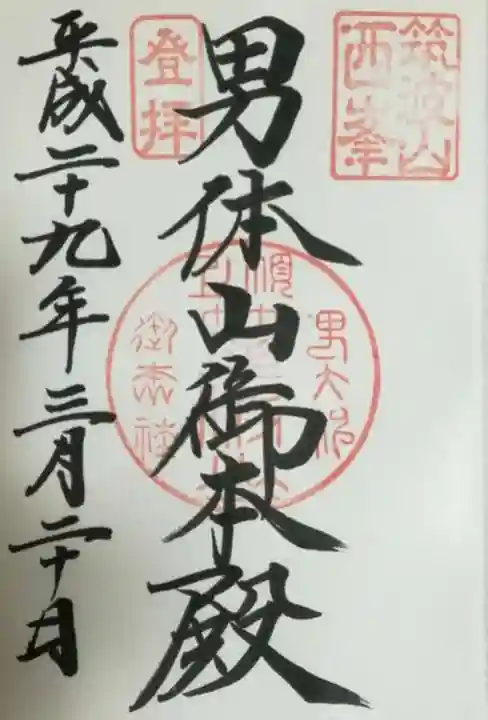 筑波山
西峯
登拝
男体山御本殿
平成二十九年三月二十日